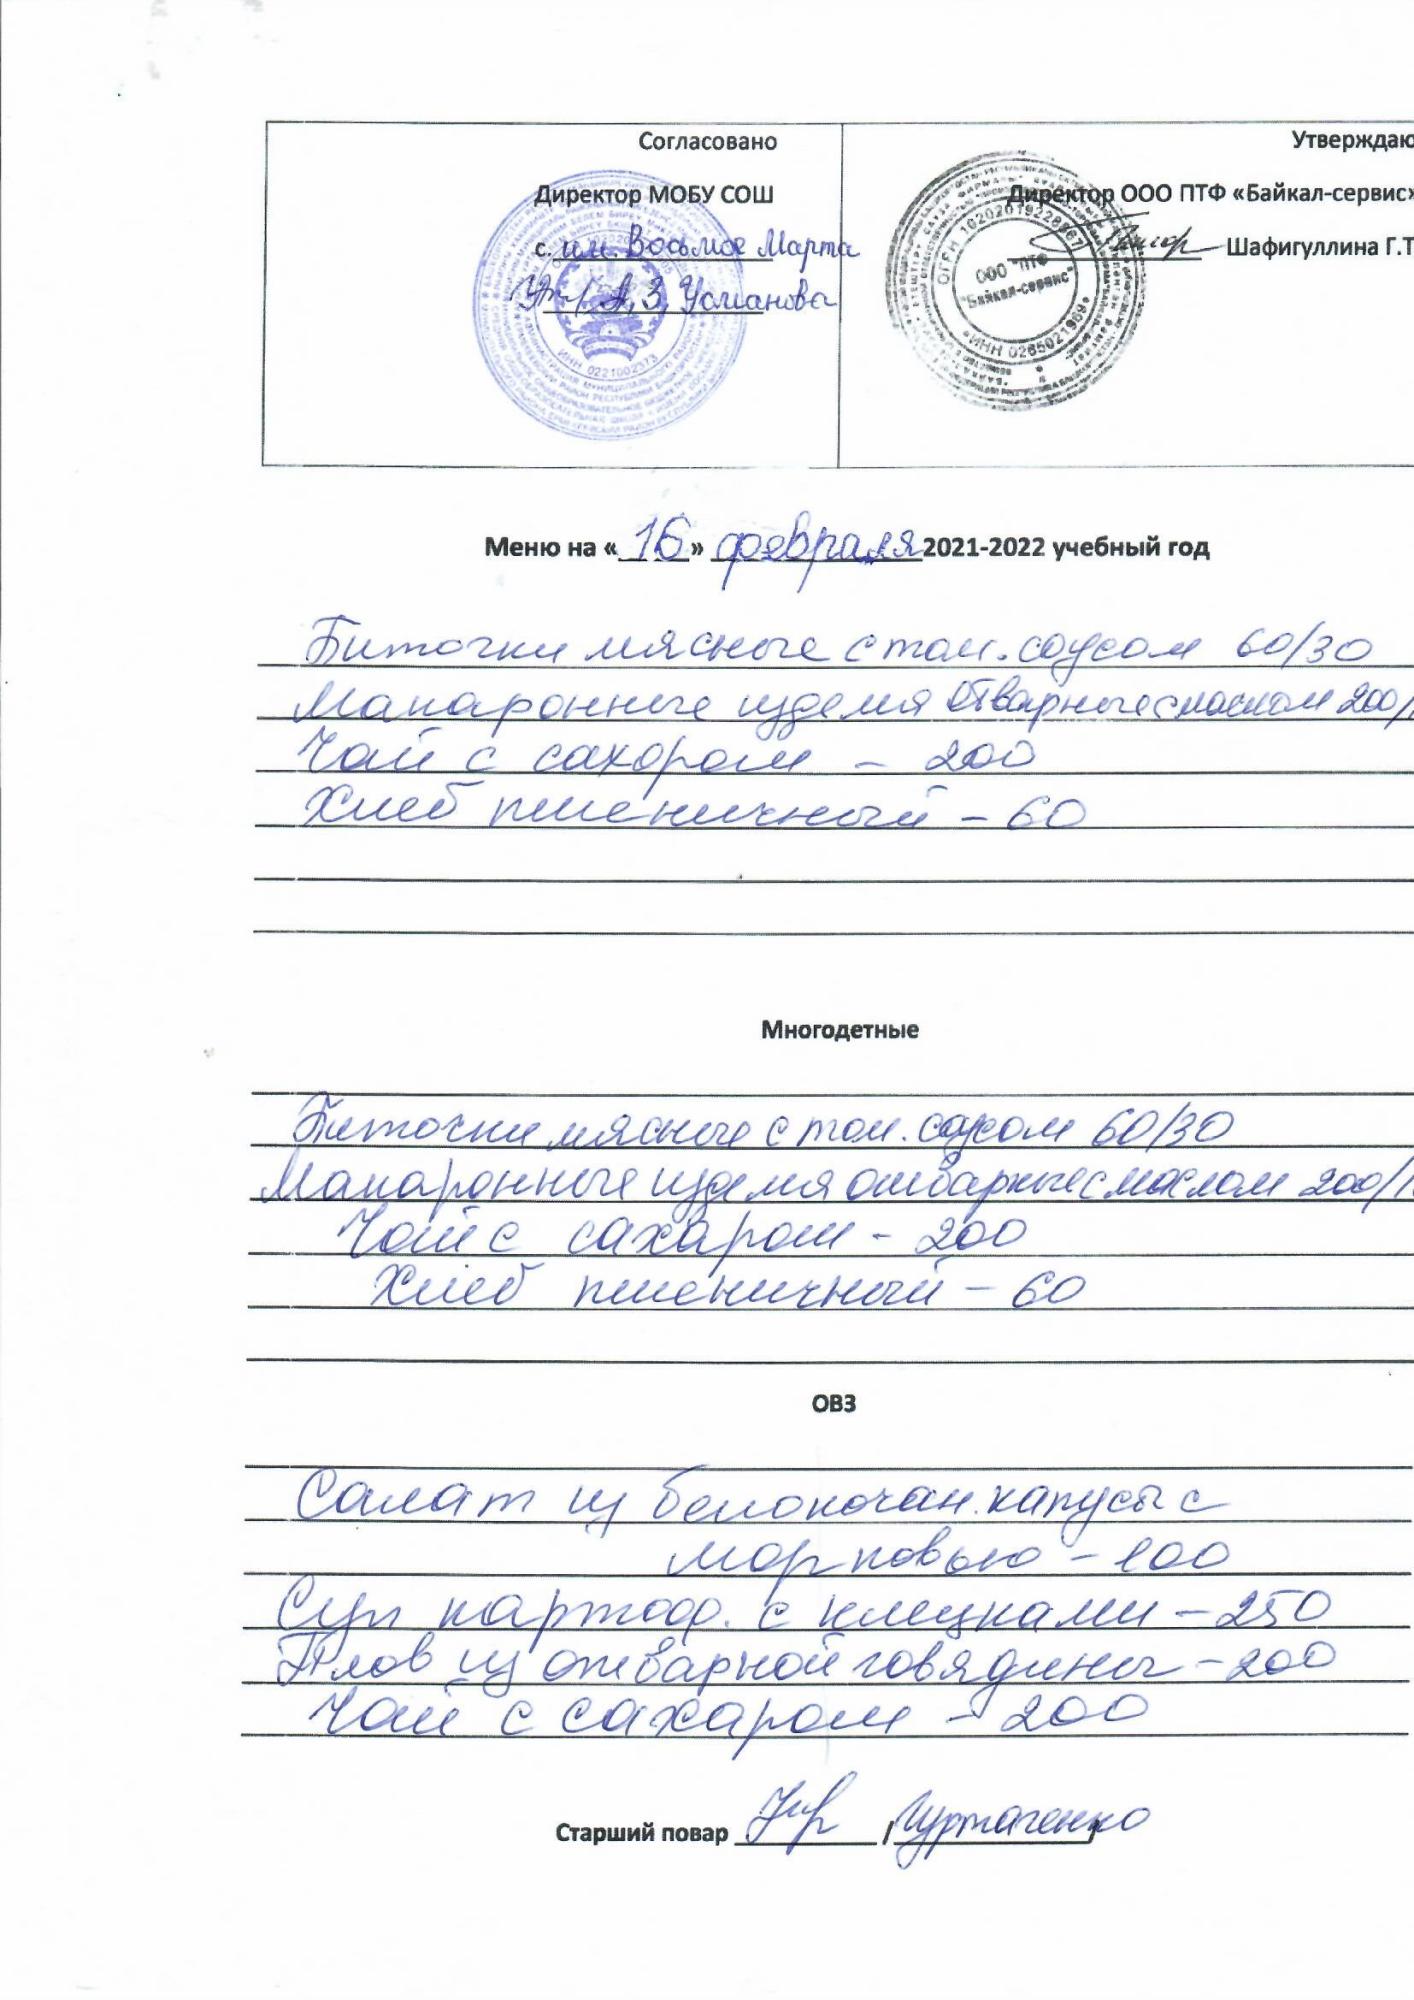 Согласовано
Директор МОБУ СОШ
с. им. Восьмое Марта
А.З. Усманова
ИНН 0221002373
Утверждаю
Директор ООО ПТФ «Байкал-сервис»
Шафигуллина Г.Т
ООО "ПТФ
"Байкал-сервис"
ИНН 0265021969
Меню на «16» февраля 2021-2022 учебный год
Биточки мясные с том. соусом 60/30
Макаронные изделия отварные с маслом 200/
Чай с сахором - 200
Хлеб пшеничный - 60
Многодетные
Биточки мясные с том. соусом 60/30
Макаронные изделия отварные с маслом 200/1
Чай с сахаром - 200
Хлеб пшеничный - 60
ОВЗ
Салат из белокочан. капусы с
морковью - 100
Суп картоф. с клецками - 250
Плов из отварной говядины - 200
Чай с сахаром - 200
Старший повар / /